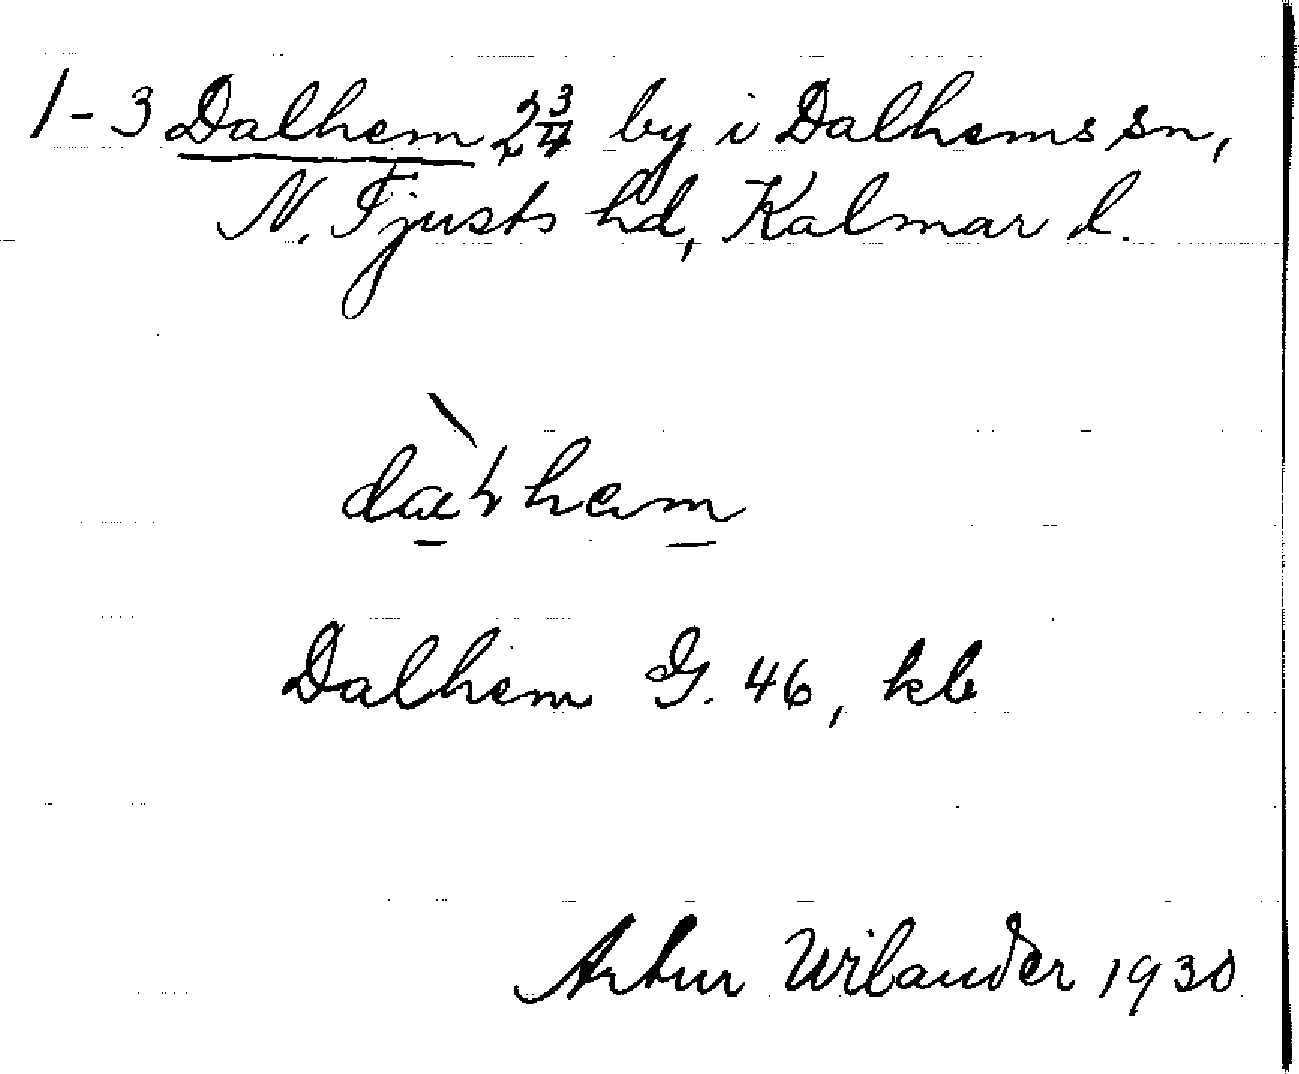 1-3 Dalhem 2 3/4 by i Dalhems sn,
N. Tjusts hd, Kalmar l.
Dalhem G. 46, kb
Artur Wilander 1930